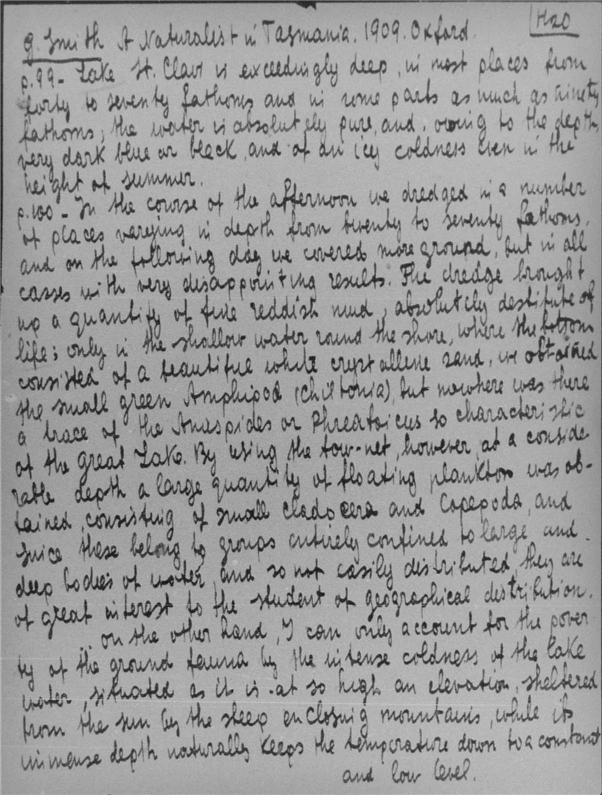 G. Smith A Naturalist in Tasmania. 1909. Oxford. H20
p.99- Lake St. Clair is exceedingly deep, in most places from
forty to seventy fathoms and in some parts as much as ninety
fathoms; the water is absolutely pure, and, owing to the depth,
very dark blue or black, and of an icy coldness even in the
height of summer.
p.100- In the course of the afternoon we dredged in a number
of places varying in depth from twenty to seventy fathoms,
and on the following day we covered more ground, but in all
casses with very disappointing results. The dredge brought
up a quantity of fine reddish mud, absolutely destitute of
life; only in the shallow water round the shore, where the bottom
consisted of a beautiful white crystallene sand, we obtained
the small green Amphipod (Chiltonia), but nowhere was there
a trace of the Anaspides or Phreatoicus so characteristic
of the Great Lake. By using the tow-net, however, at a conside
rable depth a large quantity of floating plankton was ob-
tained, consisting of small cladocera and Copepoda, and
since these belong to groups entirely confined to large and
deep bodies of water, and so not easily distributed, they are
of great interest to the student of geographical distribution.
On the other hand, I can only account for the pover
ty of the ground fauna by the intense coldness of the lake
water, situated as it is at so high an elevation, sheltered
from the sun by the steep enclosing mountains, while its
immense depth naturally keeps the temperature down to a constant
and low level.